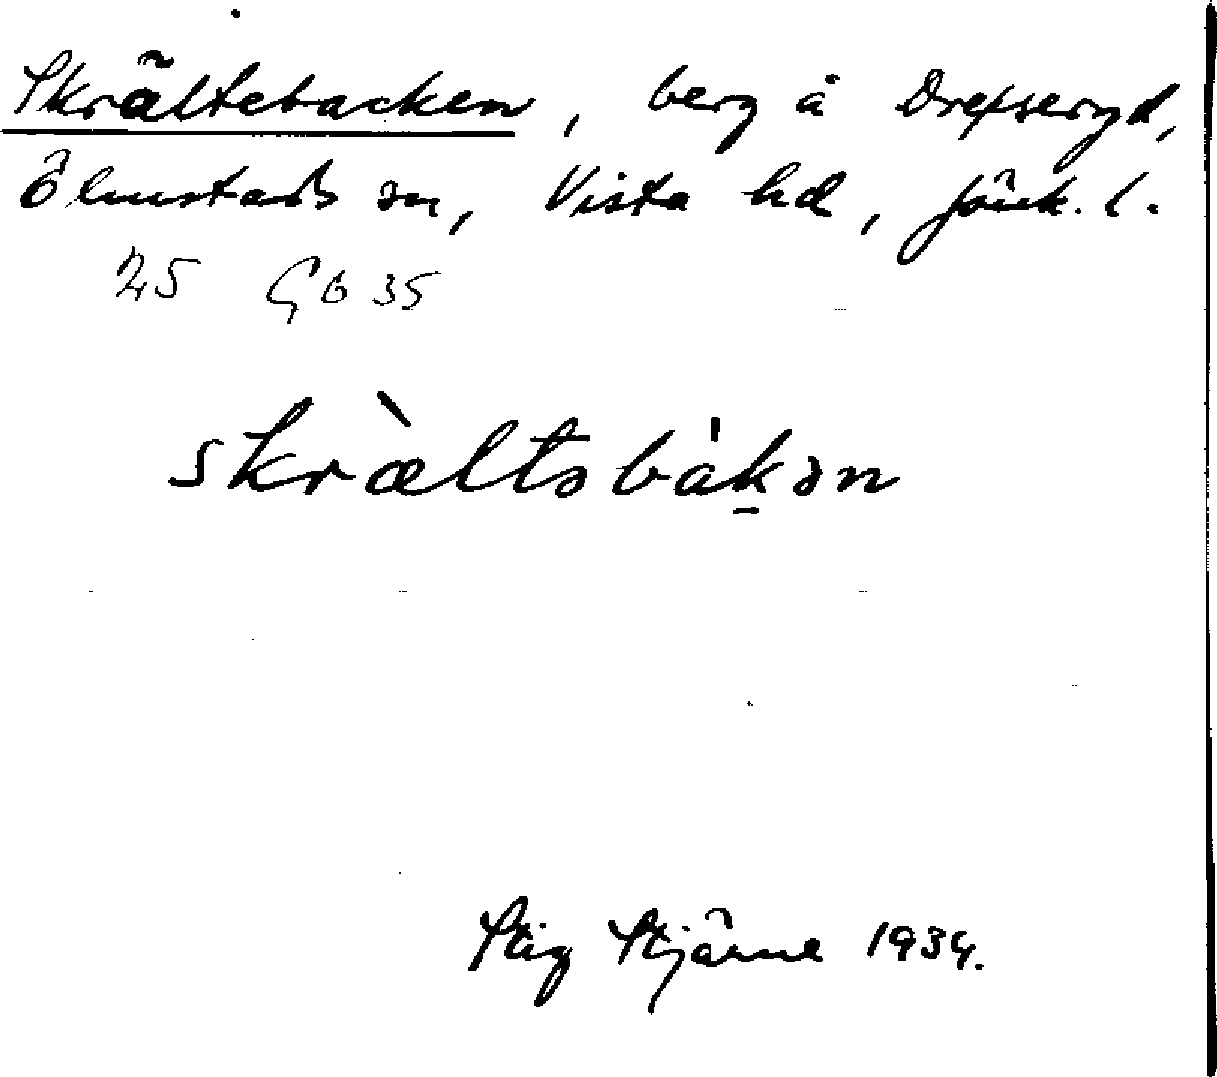 Skrältebacken, berg å Drefseryd,
Ölmstads sn, Vista hd, Jönk. l.
25 Gb 35
skræ̀ltəbàk̠ən
Stig Stjärne 1934.